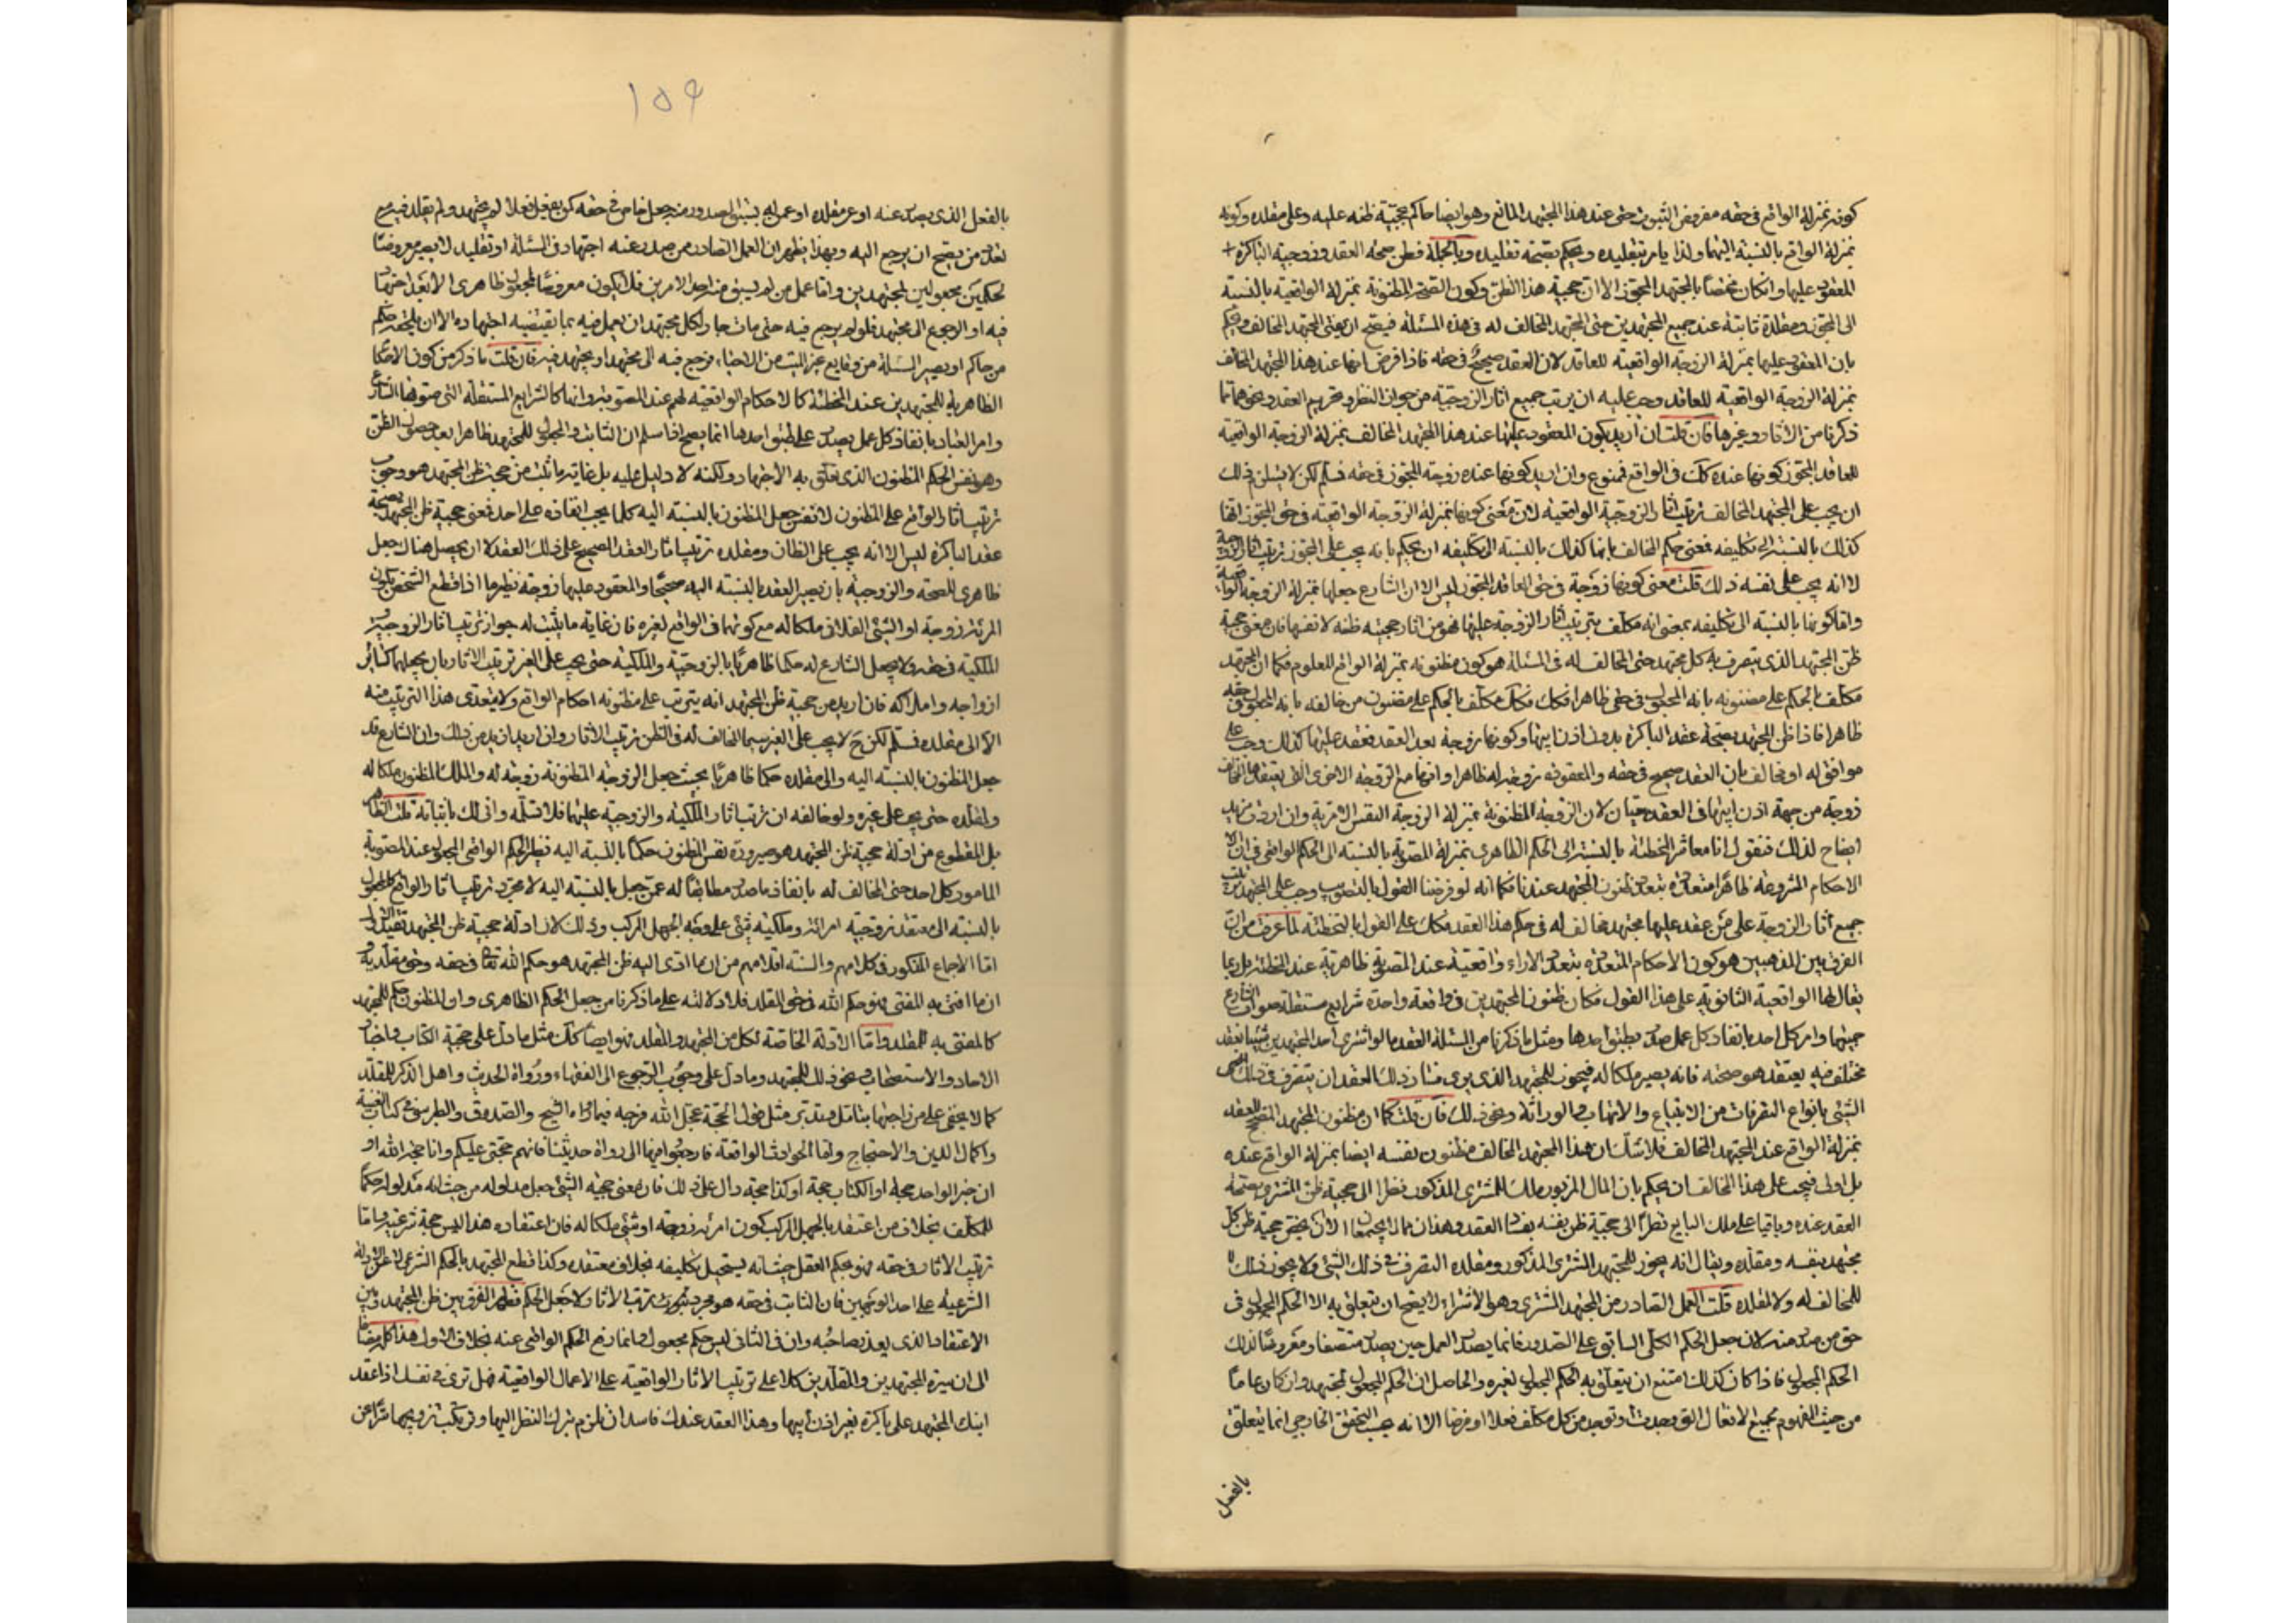 كونه بمنزلة الواقع في حقه مفروض الثبوت حتى عند هذا المجتهد المانع وهو ايضا حاكم بحجية ظنه عليه وعلى مقلده وكونه
بمنزلة الواقع بالنسبة اليهما ولذا يامر بتقليده ويحكم بصحة تقليده وبالجملة فظن صحة العقد وزوجية الباكرة
المعقود عليها وان كان مختصا بالمجتهد المجوز الا ان حجية هذا الظن وكون الصحة المظنونة بمنزلة الواقعية بالنسبة
الى المجوز ومقلده ثابتة عند جميع المجتهدين حتى المجتهد المخالف له في هذه المسئلة فيصح ان يفتى المجتهد المخالف ويحكم
بان المعقود عليها بمنزلة الزوجة الواقعية للعاقد لان العقد صحيح في حقه فاذا فرضنا انها عند هذا المجتهد المخالف
بمنزلة الزوجة الواقعية للعاقد وجب عليه ان يرتب جميع اثار الزوجية من جواز النظر وتحريم العقد ونحوهما مما
ذكرنا من الاثار وغيرها فان قلت ان اريد بكون المعقود عليها عند هذا المجتهد المخالف بمنزلة الزوجة الواقعية
للعاقد المجوز كونها عنده كك في الواقع فممنوع وان اريد كونها عنده زوجة المجوز في حقه فسلم لكن لا يستلزم ذلك
ان يجب على المجتهد المخالف ترتيب اثار الزوجية الواقعية لان معنى كونها بمنزلة الزوجة الواقعية في حق المجوز انها
كذلك بالنسبة الى تكليفه فمعنى حكم المخالف بانها كذلك بالنسبة الى تكليفه ان يحكم بانه يجب على المجوز ترتيب اثار الزوجية
لا انه يجب على نفسه ذلك قلت معنى كونها زوجة في حق العاقد المجوز ليس الا ان الشارع جعلها بمنزلة الزوجة الواقعية
واما كونها بالنسبة الى تكليفه بمعنى انه مكلف بترتيب اثار الزوجة عليها فهو من اثار حجية ظنه لا نفسها فان معنى حجية
ظن المجتهد الذي يتصرف به كل مجتهد حتى المخالف له في المسئلة هو كون مظنونه بمنزلة الواقع المعلوم فكما ان المجتهد
مكلف بالحكم على مظنونه بانه المجعول في حقي ظاهرا فكك مكلف بالحكم على مظنون من خالفه بانه المجعول في حقه
ظاهرا فاذا ظن المجتهد بصحة عقد الباكرة بدون اذن ابيها وكونها زوجة بعد العقد فعقد عليها كذلك وجب على
موافق له او مخالف بان العقد صحيح في حقه والمعقودة زوجة له ظاهرا وانها مع الزوجة الاخرى التي يعتقدها المخالف
زوجة من جهة اذن ابيها في العقد سيان لان الزوجة المظنونة بمنزلة الزوجة النفس الامرية وان اردت مزيد
ايضاح لذلك فنقول انا معاشر المخطئة بالنسبة الى الحكم الظاهري بمنزلة المصوبة بالنسبة الى الحكم الواقعي في ان
الاحكام المشروعة ظاهرا متعددة بتعدد ظنون المجتهد عندنا فكما انه لو فرضنا القول بالتصويب وجب على المجتهد ترتيب
جميع اثار الزوجة على من عقد عليها مجتهد مخالف له في حكم هذا العقد فكك على القول بالتخطئة لما عرفت من ان
الفرق بين المذهبين هو كون الاحكام المتعددة بتعدد الاراء واقعية عند المصوبة ظاهرية عند المخطئة بل ربما
يقال لها الواقعية الثانوية على هذا القول فكان ظنون المجتهدين في واقعة واحدة شرايع مستقلة صوب الشارع
جميعها وامر كل احد بانفاذ كل عمل صدر بطبق احدها ومثل ما ذكرنا من المسئلة العقد ما لو اشترى احد المجتهدين شيئا بعقد
مختلف فيه يعتقد هو صحته فانه يصير ملكا له فيجوز للمجتهد الذي يرى فساد ذلك العقد ان يتصرف في ذلك
الشئ بانواع التصرفات من الابتياع والاتهاب والوراثة ونحو ذلك فان قلت كما ان مظنون المجتهد المصحح للعقد
بمنزلة الواقع عند المجتهد المخالف فلا شك ان هذا المجتهد المخالف مظنون نفسه ايضا بمنزلة الواقع عنده
بل اولى فيجب على هذا المخالف ان يحكم بان المال المزبور ملك للمشترى المذكور نظرا الى حجية ظن المشترى بصحة
العقد عنده وباقيا على ملك البايع نظرا الى حجية ظن نفسه بفساد العقد وهذان مما لا يجتمعان الا ان يختص حجية ظن كل
مجتهد بنفسه ومقلده ويقال انه يجوز للمجتهد المشترى المذكور ومقلده التصرف في ذلك الشئ ولا يجوز ذلك
للمخالف له ولا لمقلده قلت العمل الصادر من المجتهد المشترى وهو الاشتراء لا يصح ان يتعلق به الا الحكم المجعول في
حق من صدر منه لان جعل الحكم الكلي السابق على الصدور فانما يصدر العمل حين يصدر متصفا ومعروضا لذلك
الحكم المجعول فاذا كان كذلك امتنع ان يتعلق به الحكم المجعول لغيره والحاصل ان الحكم المجعول لمجتهد وان كان عاما
من حيث المفهوم لجميع الافعال التي وجدت او توجد من كل مكلف فعلا او فرضا الا انه بحسب التحقق الخارجي انما يتعلق
بالفعل
١٥٩
بالفعل الذي يصدر عنه او عن مقلده او عمن لم يسبق لصدوره منه جعل خاص في حقه كمن يفعل فعلا لم يجتهد ولم يقلد فيه مع
تعدد من يصح ان يرجع اليه وبهذا يظهر ان العمل الصادر ممن صدر عنه اجتهاد في المسئلة او تقليد لا يصير معروضا
لحكمين مجعولين لمجتهدين واما عمل من لم يسبق منه احد الامرين فلا يكون معروضا لمجعول ظاهري الا بعد اجتهاد
فيه او الرجوع الى مجتهد فلو لم يرجع فيه حتى مات جاز لكل مجتهد ان يعمل فيه بما يقتضيه اجتهاده الا ان يلحقه حكم
من حاكم او يصير المسئلة من وقايع غير الميت من الاحياء فرجع فيه الى مجتهد او يجتهد فيه فان قلت ما ذكر من كون الاحكام
الظاهرية للمجتهدين عند المخطئة كالاحكام الواقعية لهم عند المصوبة وانها كالشرايع المستقلة التي صوبها الشارع
وامر العباد بانفاذ كل عمل يصدر على طبق احدها انما يصح اذا سلم ان الثابت والمجعول للمجتهد ظاهرا بعد حصول الظن
وهو نفس الحكم المظنون الذي تعلق به الاجتهاد ولكنه لا دليل عليه بل غاية ما ثبت من حجية ظن المجتهد هو وجوب
ترتيب اثار الواقع على المظنون لا نفس جعل المظنون بالنسبة اليه كلما يجب انفاذه على احد فمعنى حجية ظن المجتهد بصحة
عقد الباكرة ليس الا انه يجب على الظان ومقلده ترتيب اثار العقد الصحيح على ذلك العقد لا ان يحصل هناك جعل
ظاهري للصحة والزوجية بان يصير العقد بالنسبة اليه صحيحا والمعقود عليها زوجة نظير ما اذا قطع الشخص بكون
المرئة زوجة او الشئ الفلاني ملكا له مع كونهما في الواقع لغيره فان غاية ما يثبت له جواز ترتيب اثار الزوجية و
الملكية في حقه ولا يجعل الشارع له حكما ظاهريا بالزوجية والملكية حتى يجب على الغير ترتيب الاثار بان يجعلها كسائر
ازواجه واملاكه فان اريد من حجية ظن المجتهد انه يترتب على مظنونه احكام الواقع ولا يتعدى هذا الترتيب منه
الا الى مقلده فسلم لكن ح لا يجب على الغير سيما المخالف له في الظن ترتيب الاثار وان اريد ازيد من ذلك وان الشارع قد
جعل المظنون بالنسبة اليه والى مقلده حكما ظاهريا بحيث جعل الزوجة المظنونة زوجة له والملك المظنون ملكا له
ولمقلده حتى يجب على غيره ولو خالفه ان يرتب اثار الملكية والزوجية عليهما فلا نسلمه وانى لك باثباته قلت الظاهر
بل المقطوع من ادلة حجية ظن المجتهد هو صيرورة نفس المظنون حكما بالنسبة اليه نظير الحكم الواقعي المجعول عند المصوبة
المامور كل احد حتى المخالف له بانفاذ ما صدر مطابقا له عمن جعل بالنسبة اليه لا مجرد ترتيب اثار الواقع كالمجعول
بالنسبة الى معتقد زوجية امرائة وملكية شئ على وجه الجهل المركب وذلك لان ادلة حجية ظن المجتهد تفيد ذلك
اما الاجماع المذكور في كلامهم والسنة اقلامهم من ان ما ادى اليه ظن المجتهد هو حكم الله تعالى في حقه وحق مقلديه و
ان ما افتى به المفتى فهو حكم الله في حق المقلد فلا دلالته على ما ذكرنا من جعل الحكم الظاهري وان المظنون حكم للمجتهد
كالمفتى به للمقلد واما الادلة الخاصة لكل من المجتهد والمقلد فهو ايضا كك مثل ما دل على حجية الكتاب واخبار
الاحاد والاستصحاب ونحو ذلك للمجتهد وما دل على وجوب الرجوع الى الفقهاء ورواة الحديث واهل الذكر للمقلد
كما لا يخفى على من راجعها بتامل وتدبر مثل قول الحجة عجل الله فرجه فيما رواه الشيخ والصدوق والطبرسي في كتاب الغيبة
واكمال الدين والاحتجاج واما الحوادث الواقعة فارجعوا فيها الى رواة حديثنا فانهم حجتي عليكم وانا حجة الله او
ان خبر الواحد حجة او الكتاب حجة او كذا حجة دال على ذلك فان معنى حجية الشئ جعل مدلوله من حيث انه مدلوله حكما
للمكلف بخلاف من اعتقد بالجهل المركب كون امرئة زوجته او شئ ملكا له فان اعتقاده هذا ليس حجة شرعية واما
ترتيب الاثار في حقه فهو بحكم العقل حيث انه يستحيل تكليفه بخلاف معتقده وكذا قطع المجتهد بالحكم الشرعي لا عن الادلة
الشرعية على احد الوجهين فان الثابت في حقه هو مجرد ترتيب الاثار لا جعل الحكم فظهر الفرق بين ظن المجتهد وبين
الاعتقاد الذي يعذر صاحبه وان في الثاني ليس حكم مجعول وانما رفع الحكم الواقعي عنه بخلاف الاول هذا كله مضافا
الى ان سيرة المجتهدين والمقلدين كلا على ترتيب الاثار الواقعية على الاعمال الواقعية فهل ترى في نفسك اذا عقد
ابنك المجتهد على باكرة بغير اذن ابيها وهذا العقد عندك فاسد ان تلزم بترك النظر اليها